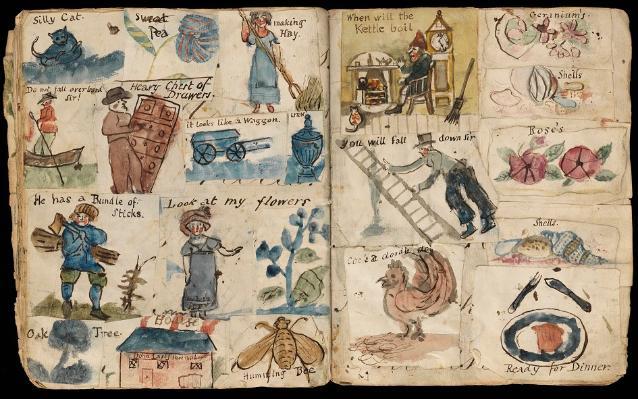 Silly Cat.
Sweat
Pea
making
Hay.
Do not fall overboard
Sir!
Heavy Chest of
Drawers.
it looks like a Waggon.
URN
He has a Bundle of
Sticks.
Look at my flowers
Oak Tree.
House
Huming Bee
When will the
Kettle boil
Geranium's.
Shells
you will fall down sir
Rose's
Cock a doodle do
Shells.
Ready for Dinner.